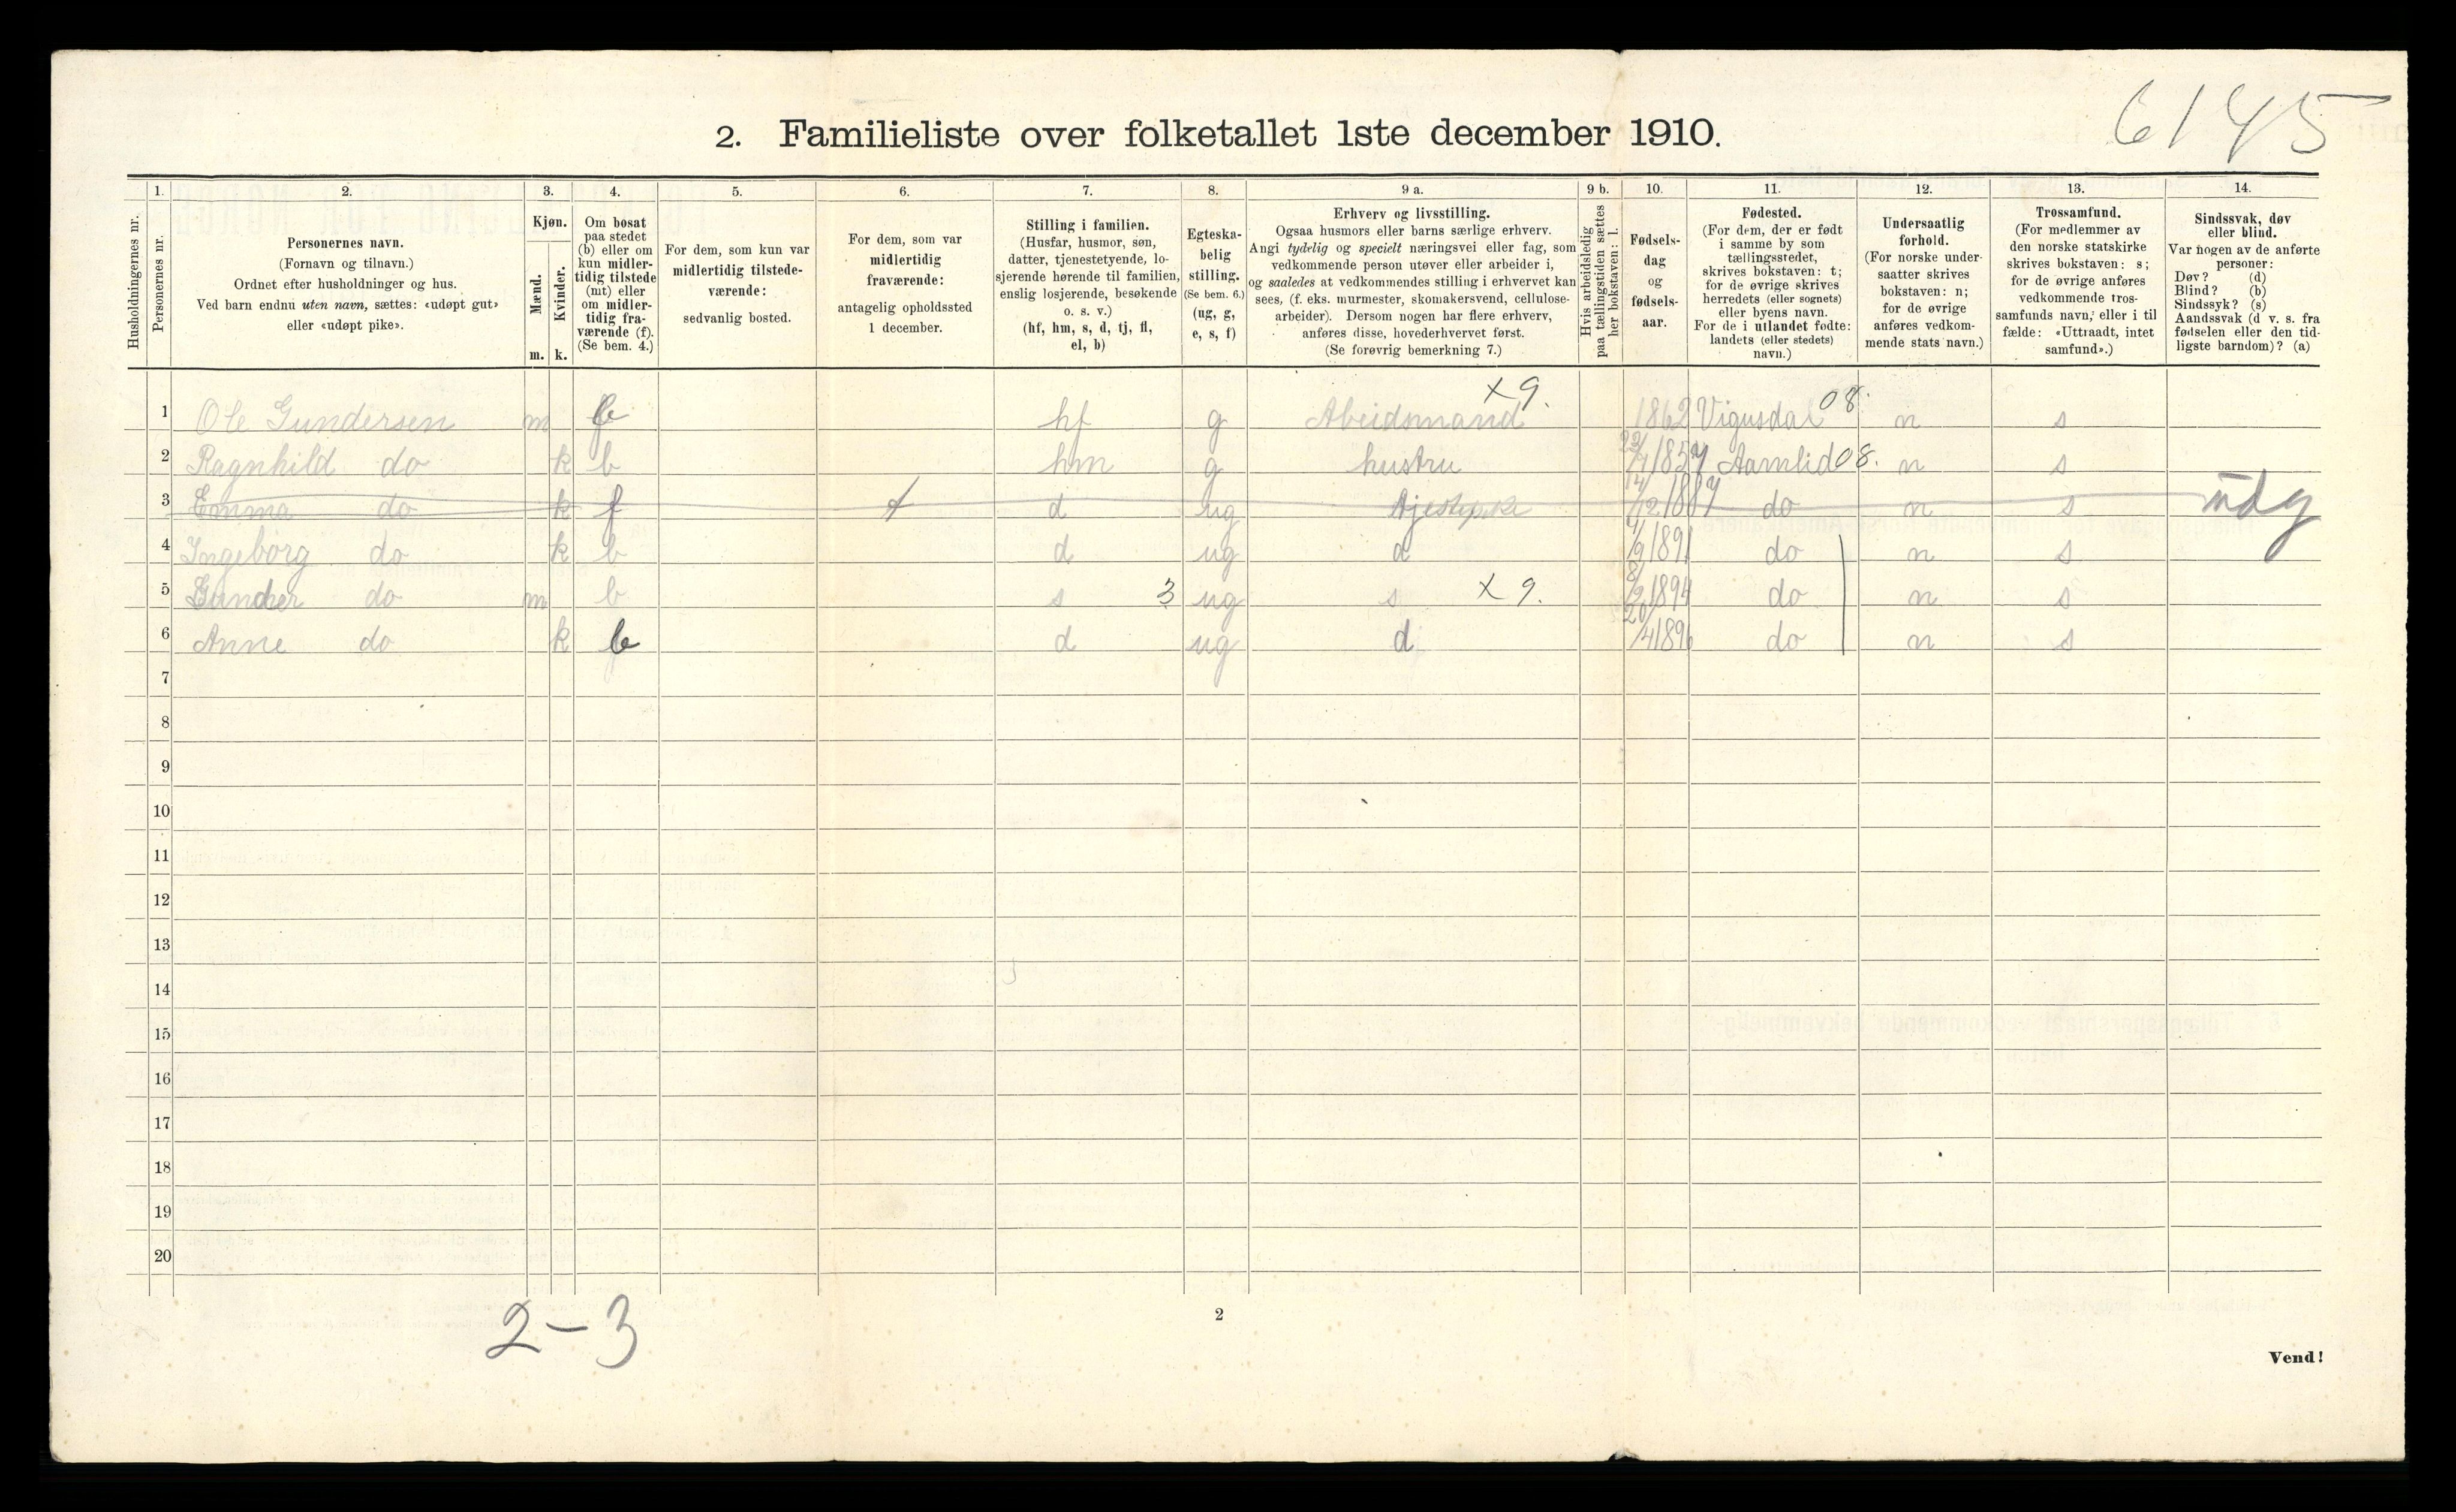 6145
2. Familieliste over folketallet 1ste december 1910.
1. 2. 3. 4. 5. 6. 7. 8. 9 a. 9 b. 10. 11. 12. 13. 14.
Husholdningernes nr.
Personernes nr.
Personernes navn.
(Fornavn og tilnavn.)
Ordnet efter husholdninger og hus.
Ved barn endnu uten navn, sættes: «udøpt gut»
eller «udøpt pike».
Kjøn.
Mænd.
Kvinder.
m. k.
Om bosat
paa stedet
(b) eller om
kun midler-
tidig tilstede
(mt) eller
om midler-
tidig fra-
værende (f).
(Se bem. 4.)
For dem, som kun var
midlertidig tilstede-
værende:
sedvanlig bosted.
For dem, som var
midlertidig
fraværende:
antagelig opholdssted
1 december.
Stilling i familien.
(Husfar, husmor, søn,
datter, tjenestetyende, lo-
sjerende hørende til familien,
enslig losjerende, besøkende
o. s. v.)
(hf, hm, s, d, tj, fl,
el, b)
Egteska-
belig
stilling.
(Se bem. 6.)
(ug, g,
e, s, f)
Erhverv og livsstilling.
Ogsaa husmors eller barns særlige erhverv.
Angi tydelig og specielt næringsvei eller fag, som
vedkommende person utøver eller arbeider i,
og saaledes at vedkommendes stilling i erhvervet kan
sees, (f. eks. murmester, skomakersvend, cellulose-
arbeider). Dersom nogen har flere erhverv,
anføres disse, hovederhvervet først.
(Se forøvrig bemerkning 7.)
Hvis arbeidsledig
paa tællingstiden sættes
her bokstaven: l.
Fødsels-
dag
og
fødsels-
aar.
Fødested.
(For dem, der er født
i samme by som
tællingsstedet,
skrives bokstaven: t;
for de øvrige skrives
herredets (eller sognets)
eller byens navn.
For de i utlandet fødte:
landets (eller stedets)
navn.)
Undersaatlig
forhold.
(For norske under-
saatter skrives
bokstaven: n;
for de øvrige
anføres vedkom-
mende stats navn.)
Trossamfund.
(For medlemmer av
den norske statskirke
skrives bokstaven: s;
for de øvrige anføres
vedkommende tros-
samfunds navn, eller i til
fælde: «Uttraadt, intet
samfund».)
Sindssvak, døv
eller blind.
Var nogen av de anførte
personer:
Døv? (d)
Blind? (b)
Sindssyk? (s)
Aandssvak (d v. s. fra
fødselen eller den tid-
ligste barndom)? (a)
1 Ole Gundersen m b hf g Abeidsmand x 9. 1862 Vigusdal 08. n s
2 Ragnhild do k b hm g hustru 1857 Aamlid 08. n s
3 Emma do k f d ug 1887 do n s udg
4 Ingeborg do k b d ug d 1891 do n s
5 Gunder do m b s 3 ug s x 9. 1894 do n s
6 Anne do k b d ug d 20/4 1896 do n s
7
8
9
10
11
12
13
14
15
16
17
18
19
20
2 - 3
2
Vend!